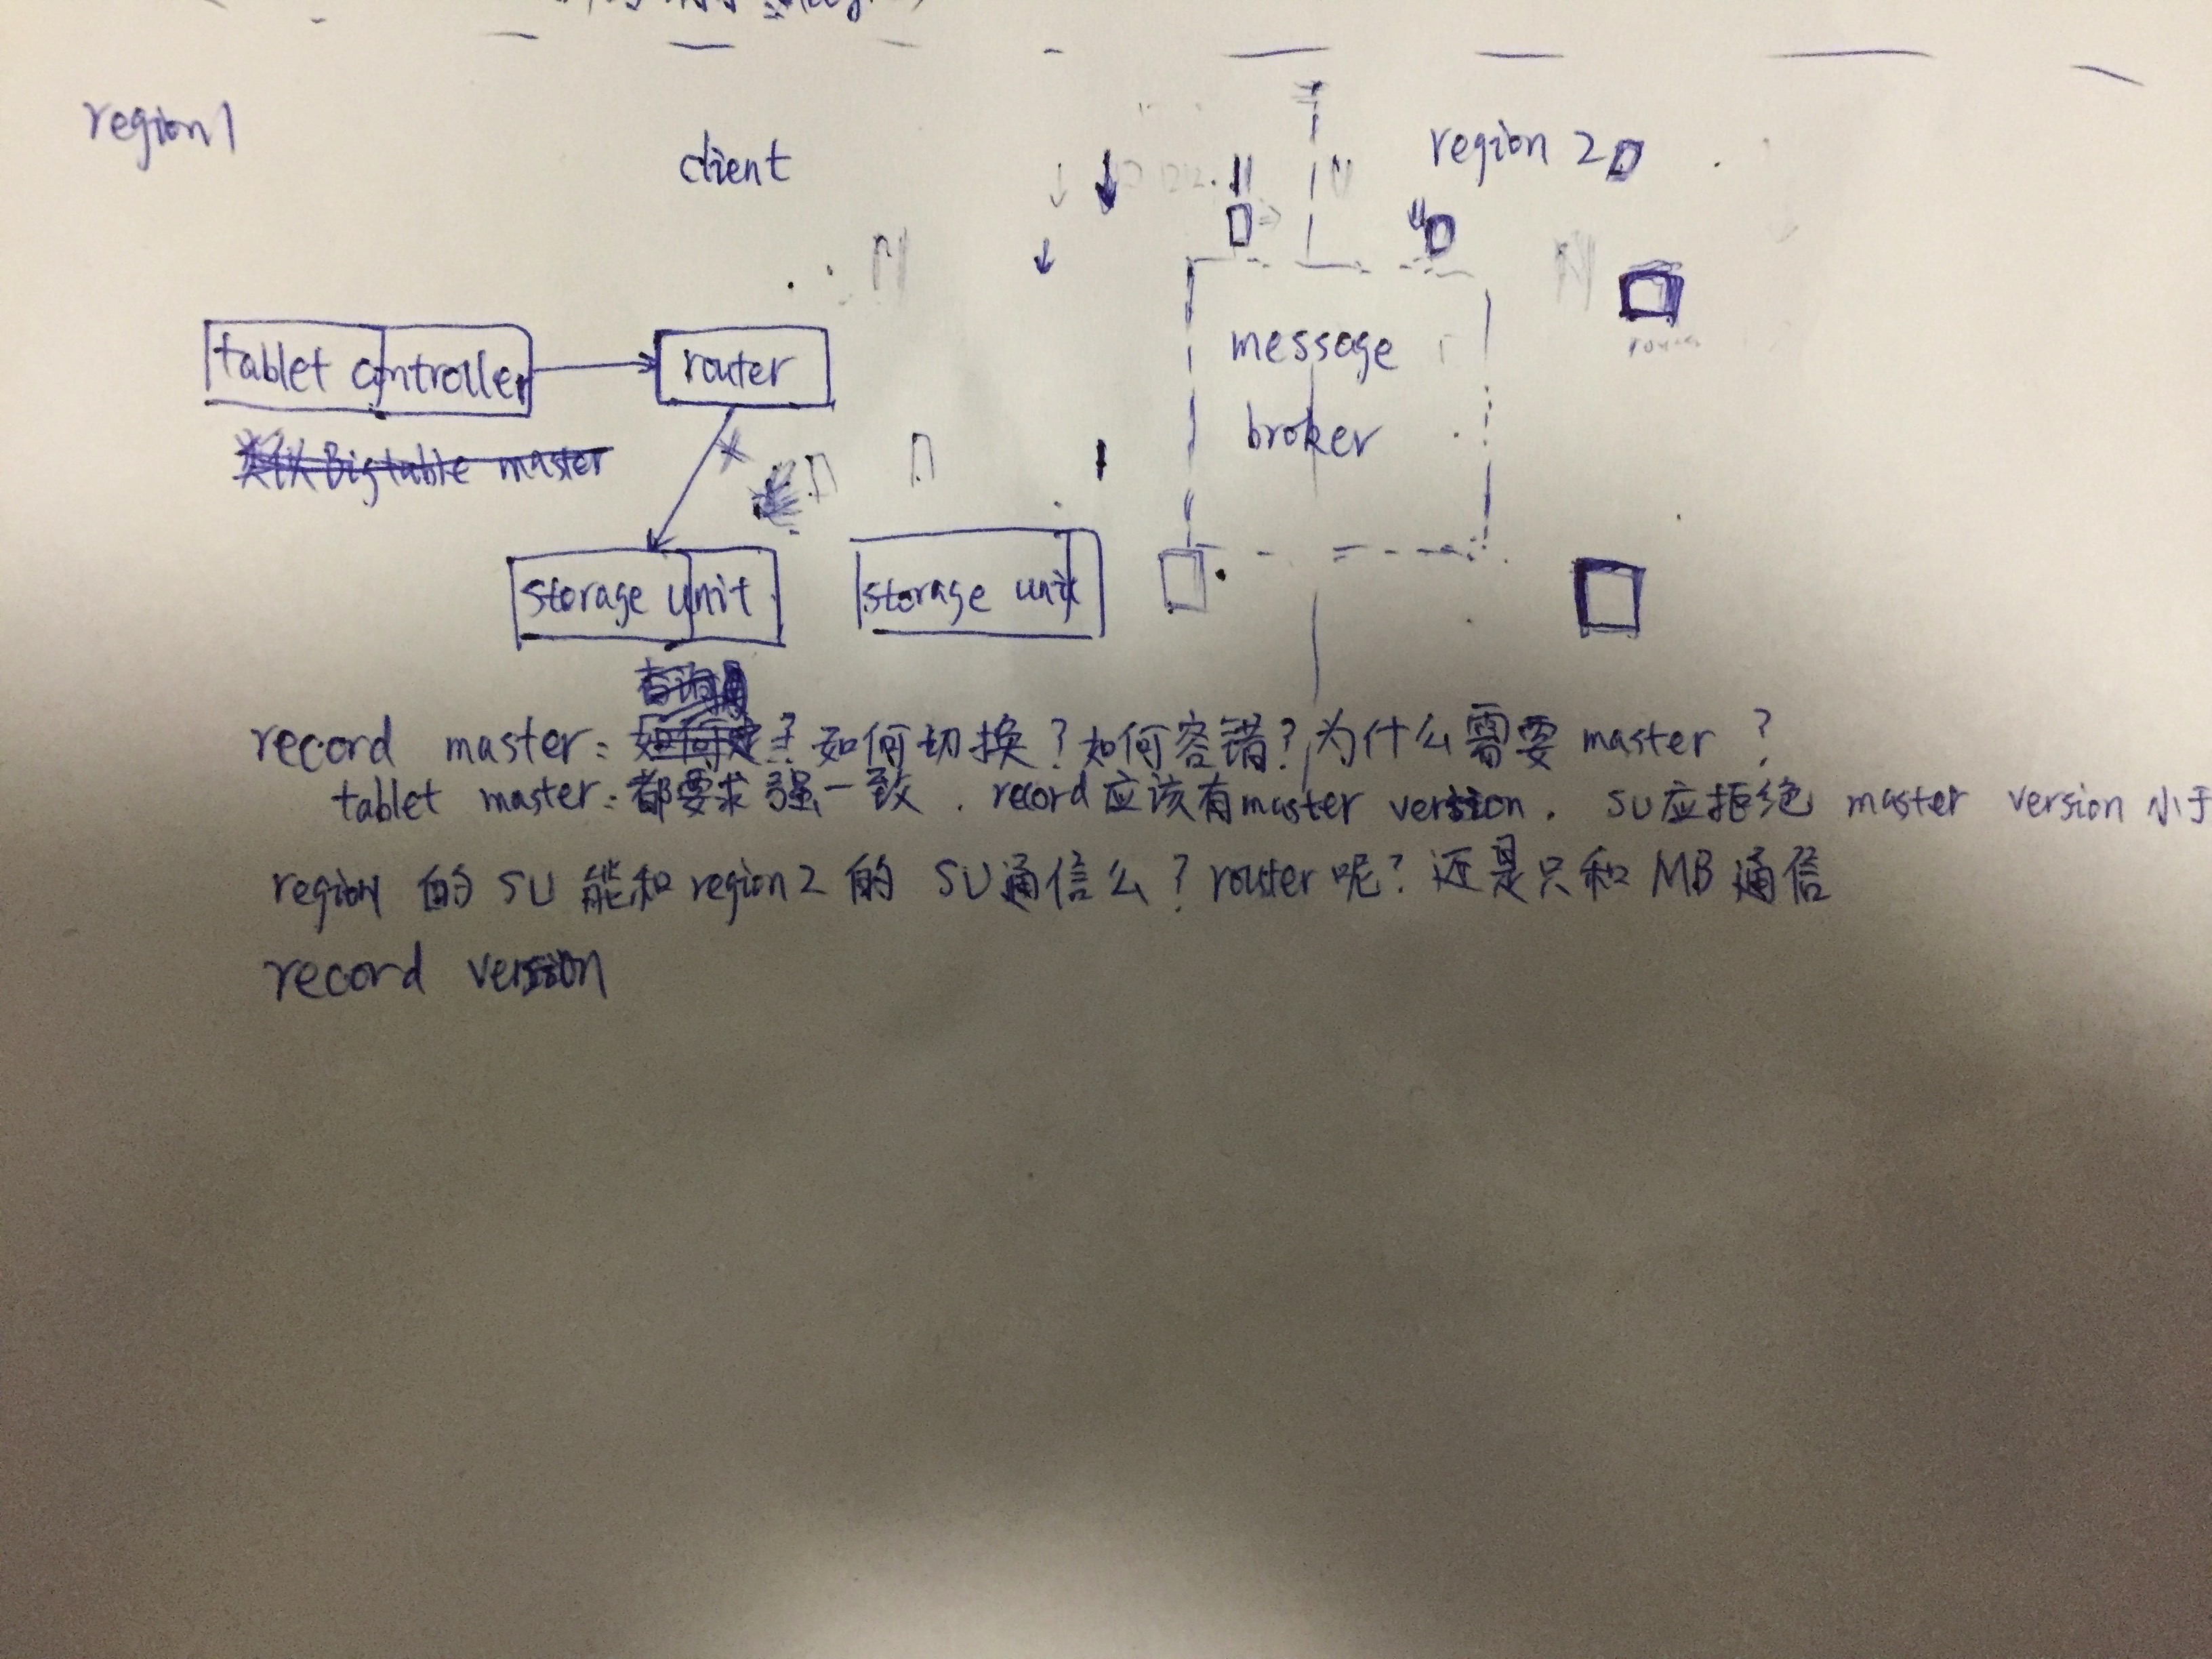 region1
client
region 2
tablet controller
router
message
broker
类似 Bigtable master
storage unit
storage unit
record master: 如何切换?如何容错?为什么需要 master ?
tablet master: 都要求强一致. record应该有master version. SU应拒绝 master version 小于
region1 的 SU 能和 region 2 的 SU通信么? router呢? 还是只和 MB 通信
record version